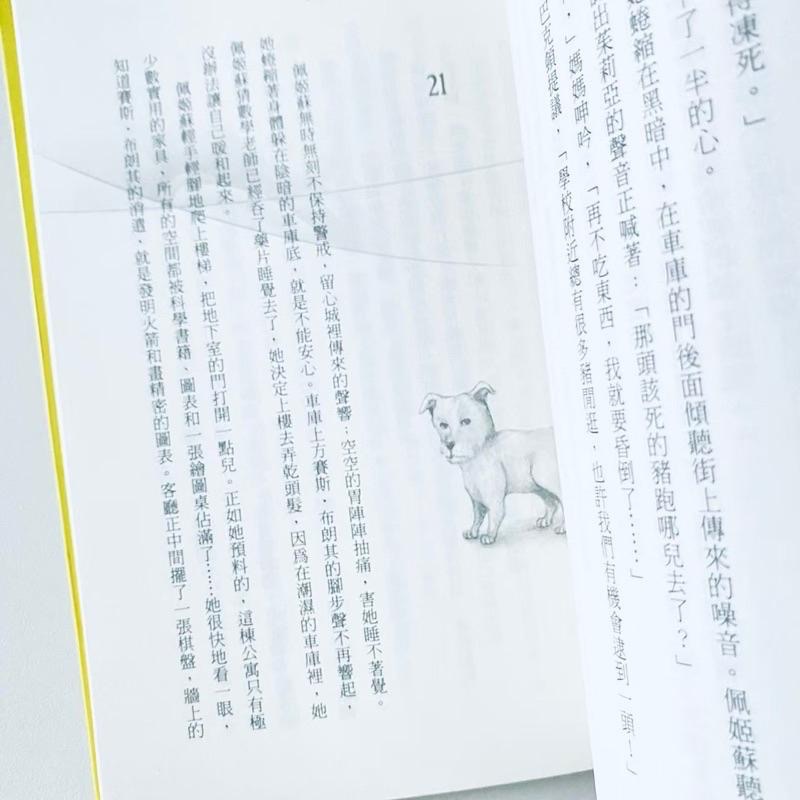 得凍死。」
了一半的心。
蜷縮在黑暗中，在車庫的門後面傾聽街上傳來的噪音。佩姬蘇聽
出茱莉亞的聲音正喊著：「那頭該死的豬跑哪兒去了？」
，」媽媽呻吟，「再不吃東西，我就要昏倒了……」
巴克頓提議，「學校附近總有很多豬閒逛，也許我們有機會逮到一頭！」
21
佩姬蘇無時無刻不保持警戒，留心城裡傳來的聲響；空空的胃陣陣抽痛，害她睡不著覺。
她蜷縮著身體躲在陰暗的車庫底，就是不能安心。車庫上方賽斯，布朗其的腳步聲不再響起，
佩姬蘇猜數學老師已經吞了藥片睡覺去了，她決定上樓去弄乾頭髮，因為在潮濕的車庫裡，她
沒辦法讓自己暖和起來。
佩姬蘇輕手輕腳地爬上樓梯，把地下室的門打開一點兒。正如她預料的，這棟公寓只有極
少數實用的家具，所有的空間都被科學書籍、圖表和一張繪圖桌佔滿了……她很快地看一眼，
知道賽斯，布朗其的消遣，就是發明火箭和畫精密的圖表。客廳正中間擺了一張棋盤，牆上的